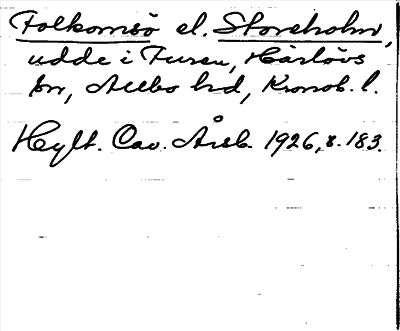 Folkomsö el. Storeholm,
udde i Furen, Härlövs
sn, Allbo hd, Kronob. l.
Hylt. Cav. Årsb. 1926, s. 183.